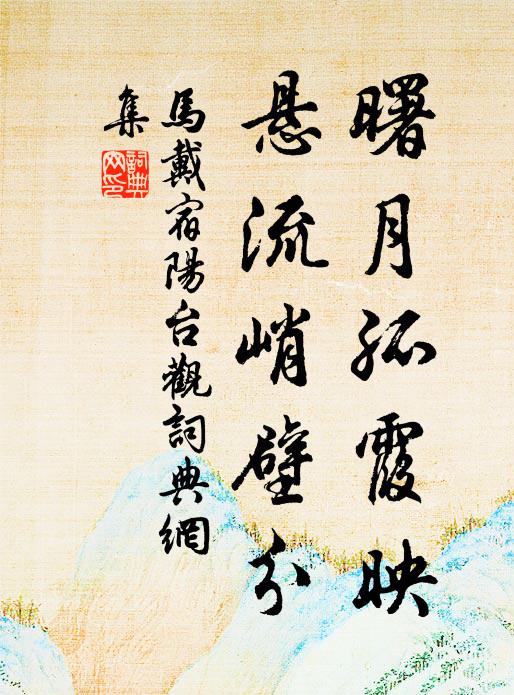 曙月孤霞映
悬流峭壁分
馬戴宿陽台觀詞典網
集
詞典網印